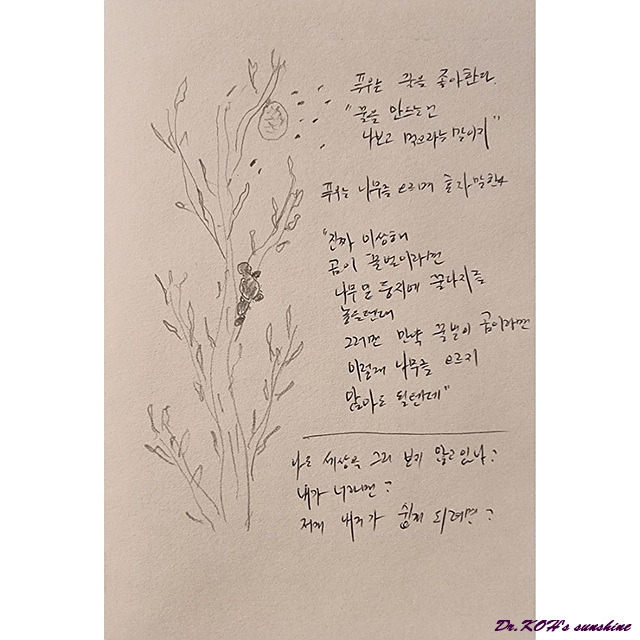 푸우는 꿀을 좋아한다.
"꿀을 만드는건
나보고 먹으라는 말이지"
푸우는 나무를 오르며 혼자말한다
"진짜 이상해
곰이 꿀벌이라면
나무 밑 둥지에 꿀단지를
놓을텐데
그러면 만약 꿀벌이 곰이라면
이렇게 나무를 오르지
않아도 될텐데"
나도 세상을 그리 보지 않고 있나?
내가 너라면?
저게 내꺼가 쉽게 되려면?
Dr.KOH's sunshine